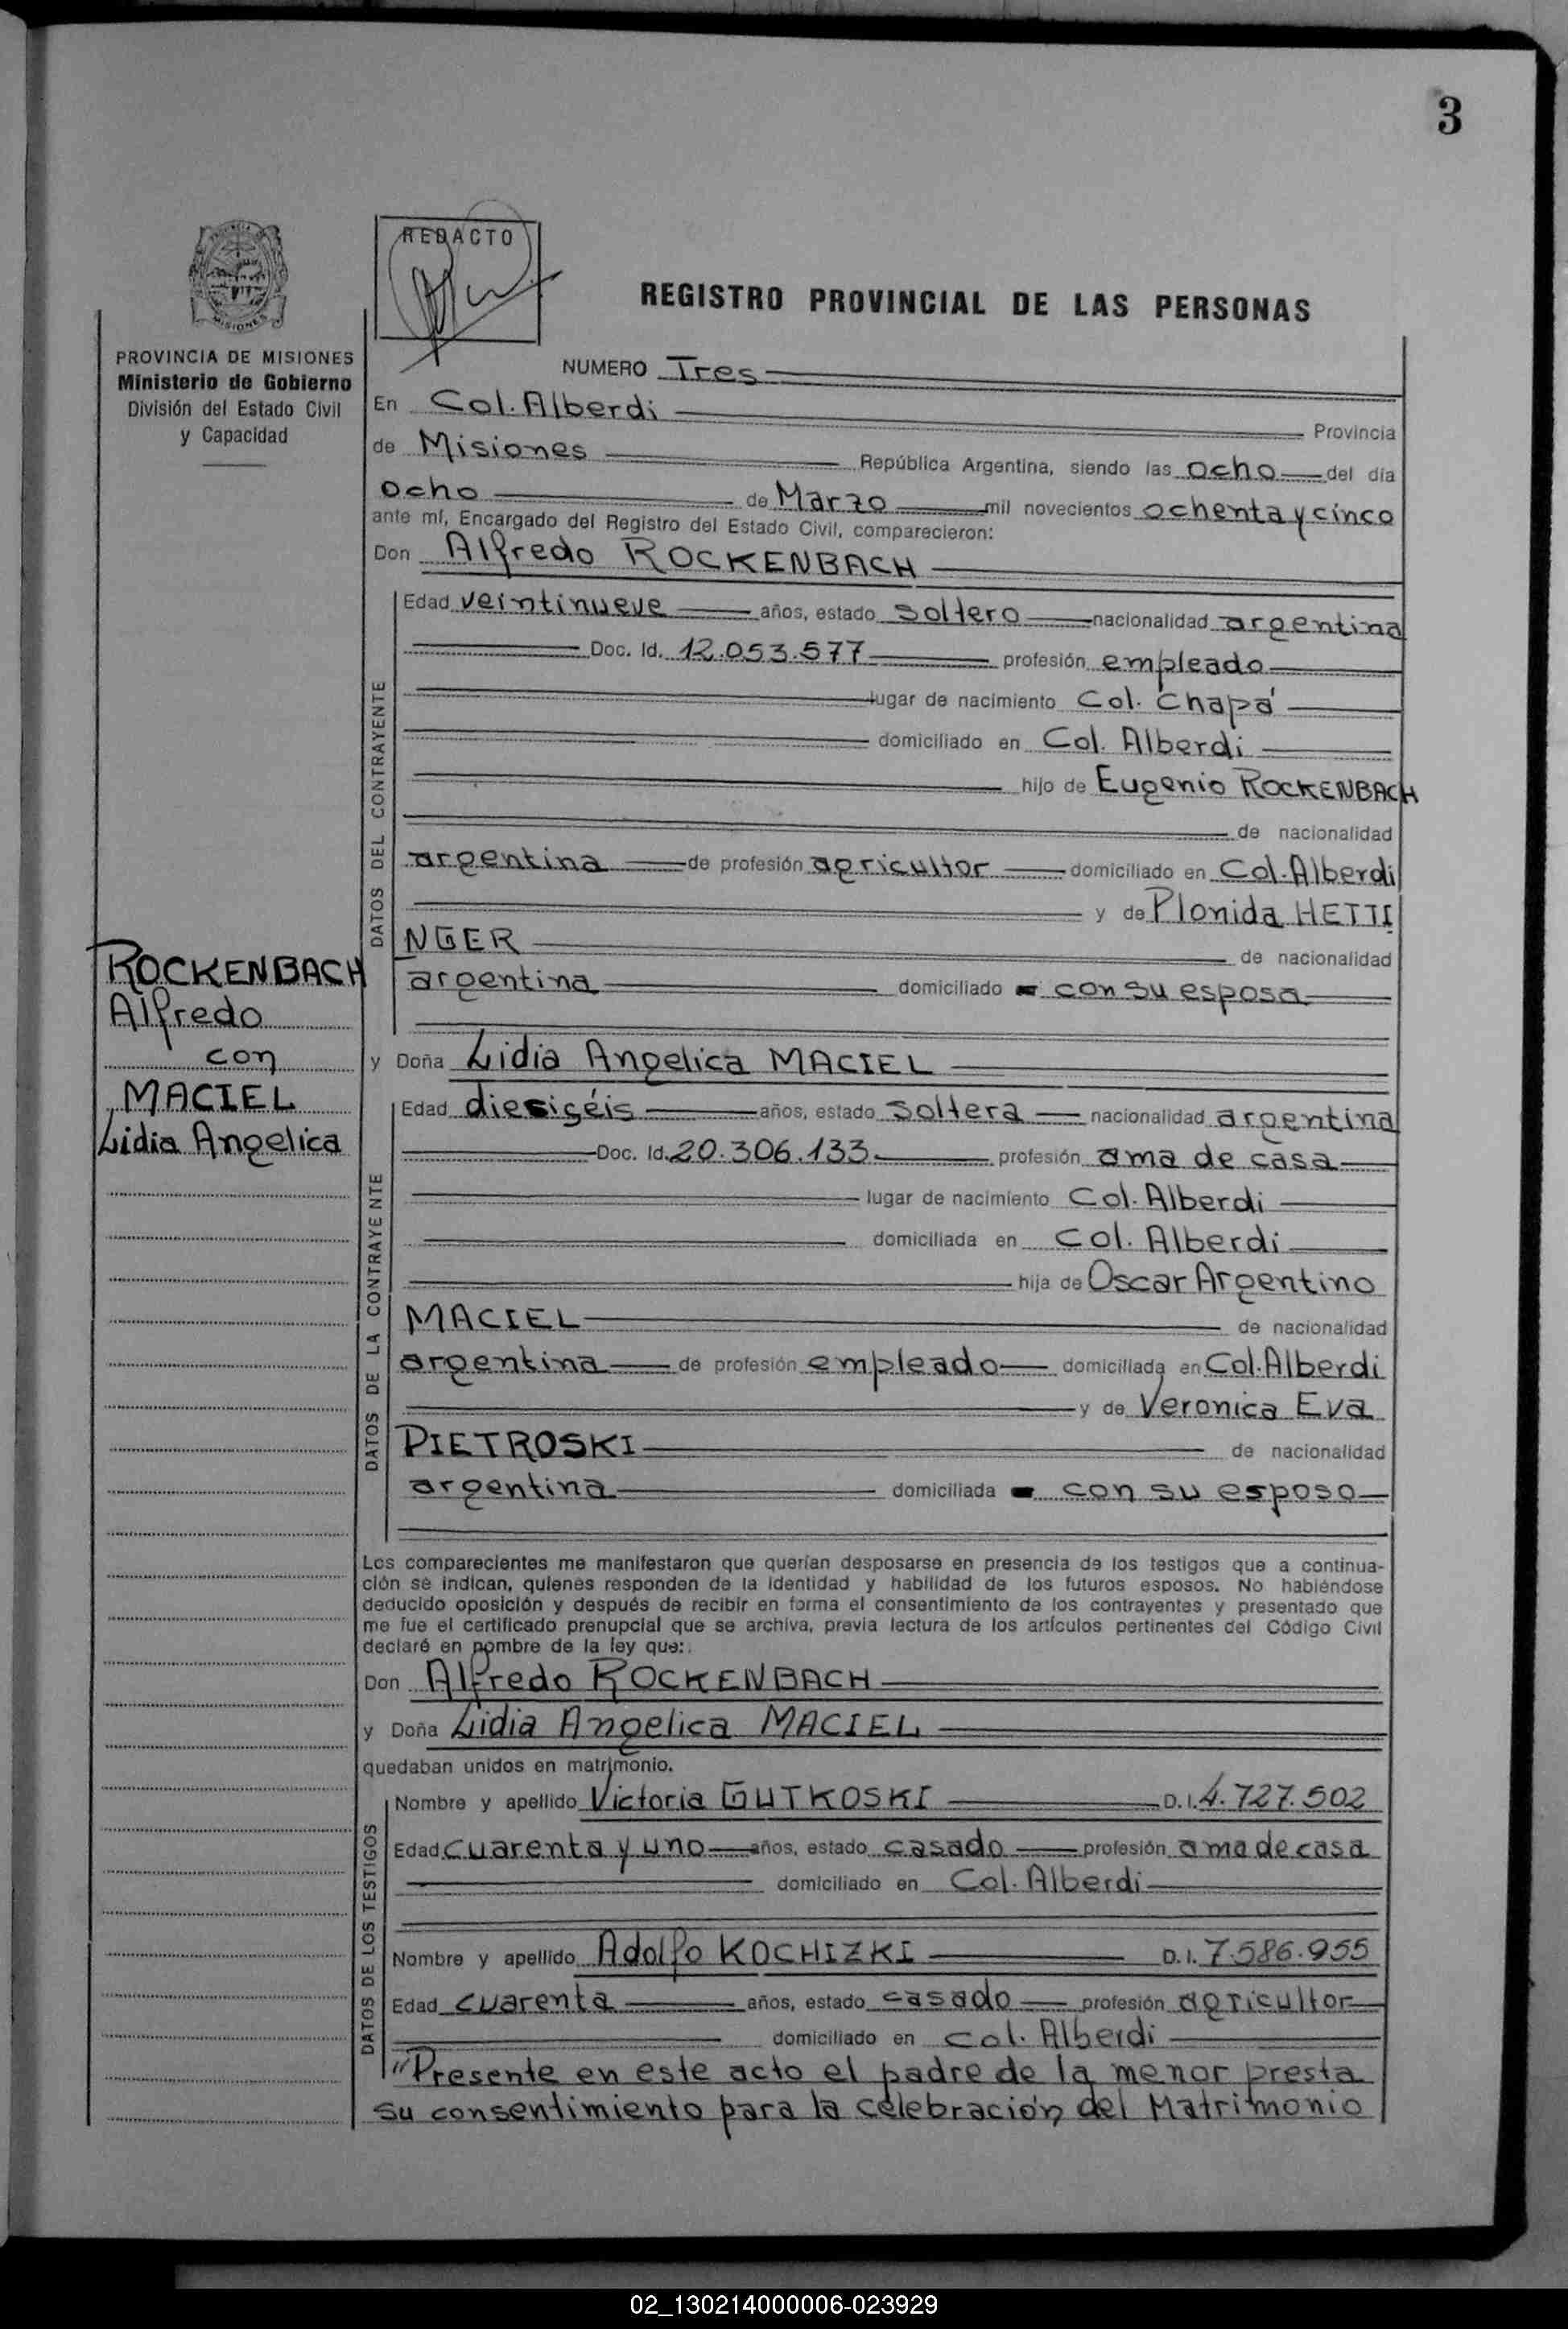 3
PROVINCIA DE MISIONES
Ministerio de Gobierno
División del Estado Civil
y Capacidad
REDACTO
REGISTRO PROVINCIAL DE LAS PERSONAS
NUMERO Tres
En Col. Alberdi Provincia
de Misiones República Argentina, siendo las ocho del día
ocho de Marzo mil novecientos ochenta y cinco
ante mí, Encargado del Registro del Estado Civil, comparecieron:
Don Alfredo ROCKENBACH
DATOS DEL CONTRAYENTE
Edad veintinueve años, estado soltero nacionalidad argentina
Doc. Id. 12.053.577 profesión empleado
lugar de nacimiento Col. Chapá
domiciliado en Col. Alberdi
hijo de Eugenio ROCKENBACH
de nacionalidad
argentina de profesión agricultor domiciliado en Col. Alberdi
y de Plonida HETTI
NGER de nacionalidad
argentina domiciliado con su esposa
ROCKENBACH
Alfredo
con
MACIEL
Lidia Angelica
y Doña Lidia Angelica MACIEL
DATOS DE LA CONTRAYENTE
Edad diesiséis años, estado soltera nacionalidad argentina
Doc. Id. 20.306.133 profesión ama de casa
lugar de nacimiento Col. Alberdi
domiciliada en Col. Alberdi
hija de Oscar Argentino
MACIEL de nacionalidad
argentina de profesión empleado domiciliada en Col. Alberdi
y de Veronica Eva
PIETROSKI de nacionalidad
argentina domiciliada con su esposo
Los comparecientes me manifestaron que querían desposarse en presencia de los testigos que a continua-
ción se indican, quienes responden de la identidad y habilidad de los futuros esposos. No habiéndose
deducido oposición y después de recibir en forma el consentimiento de los contrayentes y presentado que
me fue el certificado prenupcial que se archiva, previa lectura de los artículos pertinentes del Código Civil
declaré en nombre de la ley que:
Don Alfredo ROCKENBACH
y Doña Lidia Angelica MACIEL
quedaban unidos en matrimonio.
DATOS DE LOS TESTIGOS
Nombre y apellido Victoria GUTKOSKI D.I. 4.727.502
Edad cuarenta y uno años, estado casado profesión ama de casa
domiciliado en Col. Alberdi
Nombre y apellido Adolfo KOCHIZKI D.I. 7.586.955
Edad cuarenta años, estado casado profesión agricultor
domiciliado en Col. Alberdi
"Presente en este acto el padre de la menor presta
su consentimiento para la celebración del Matrimonio
02_130214000006-023929